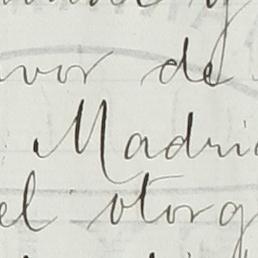 vor de
Madri
el otorg